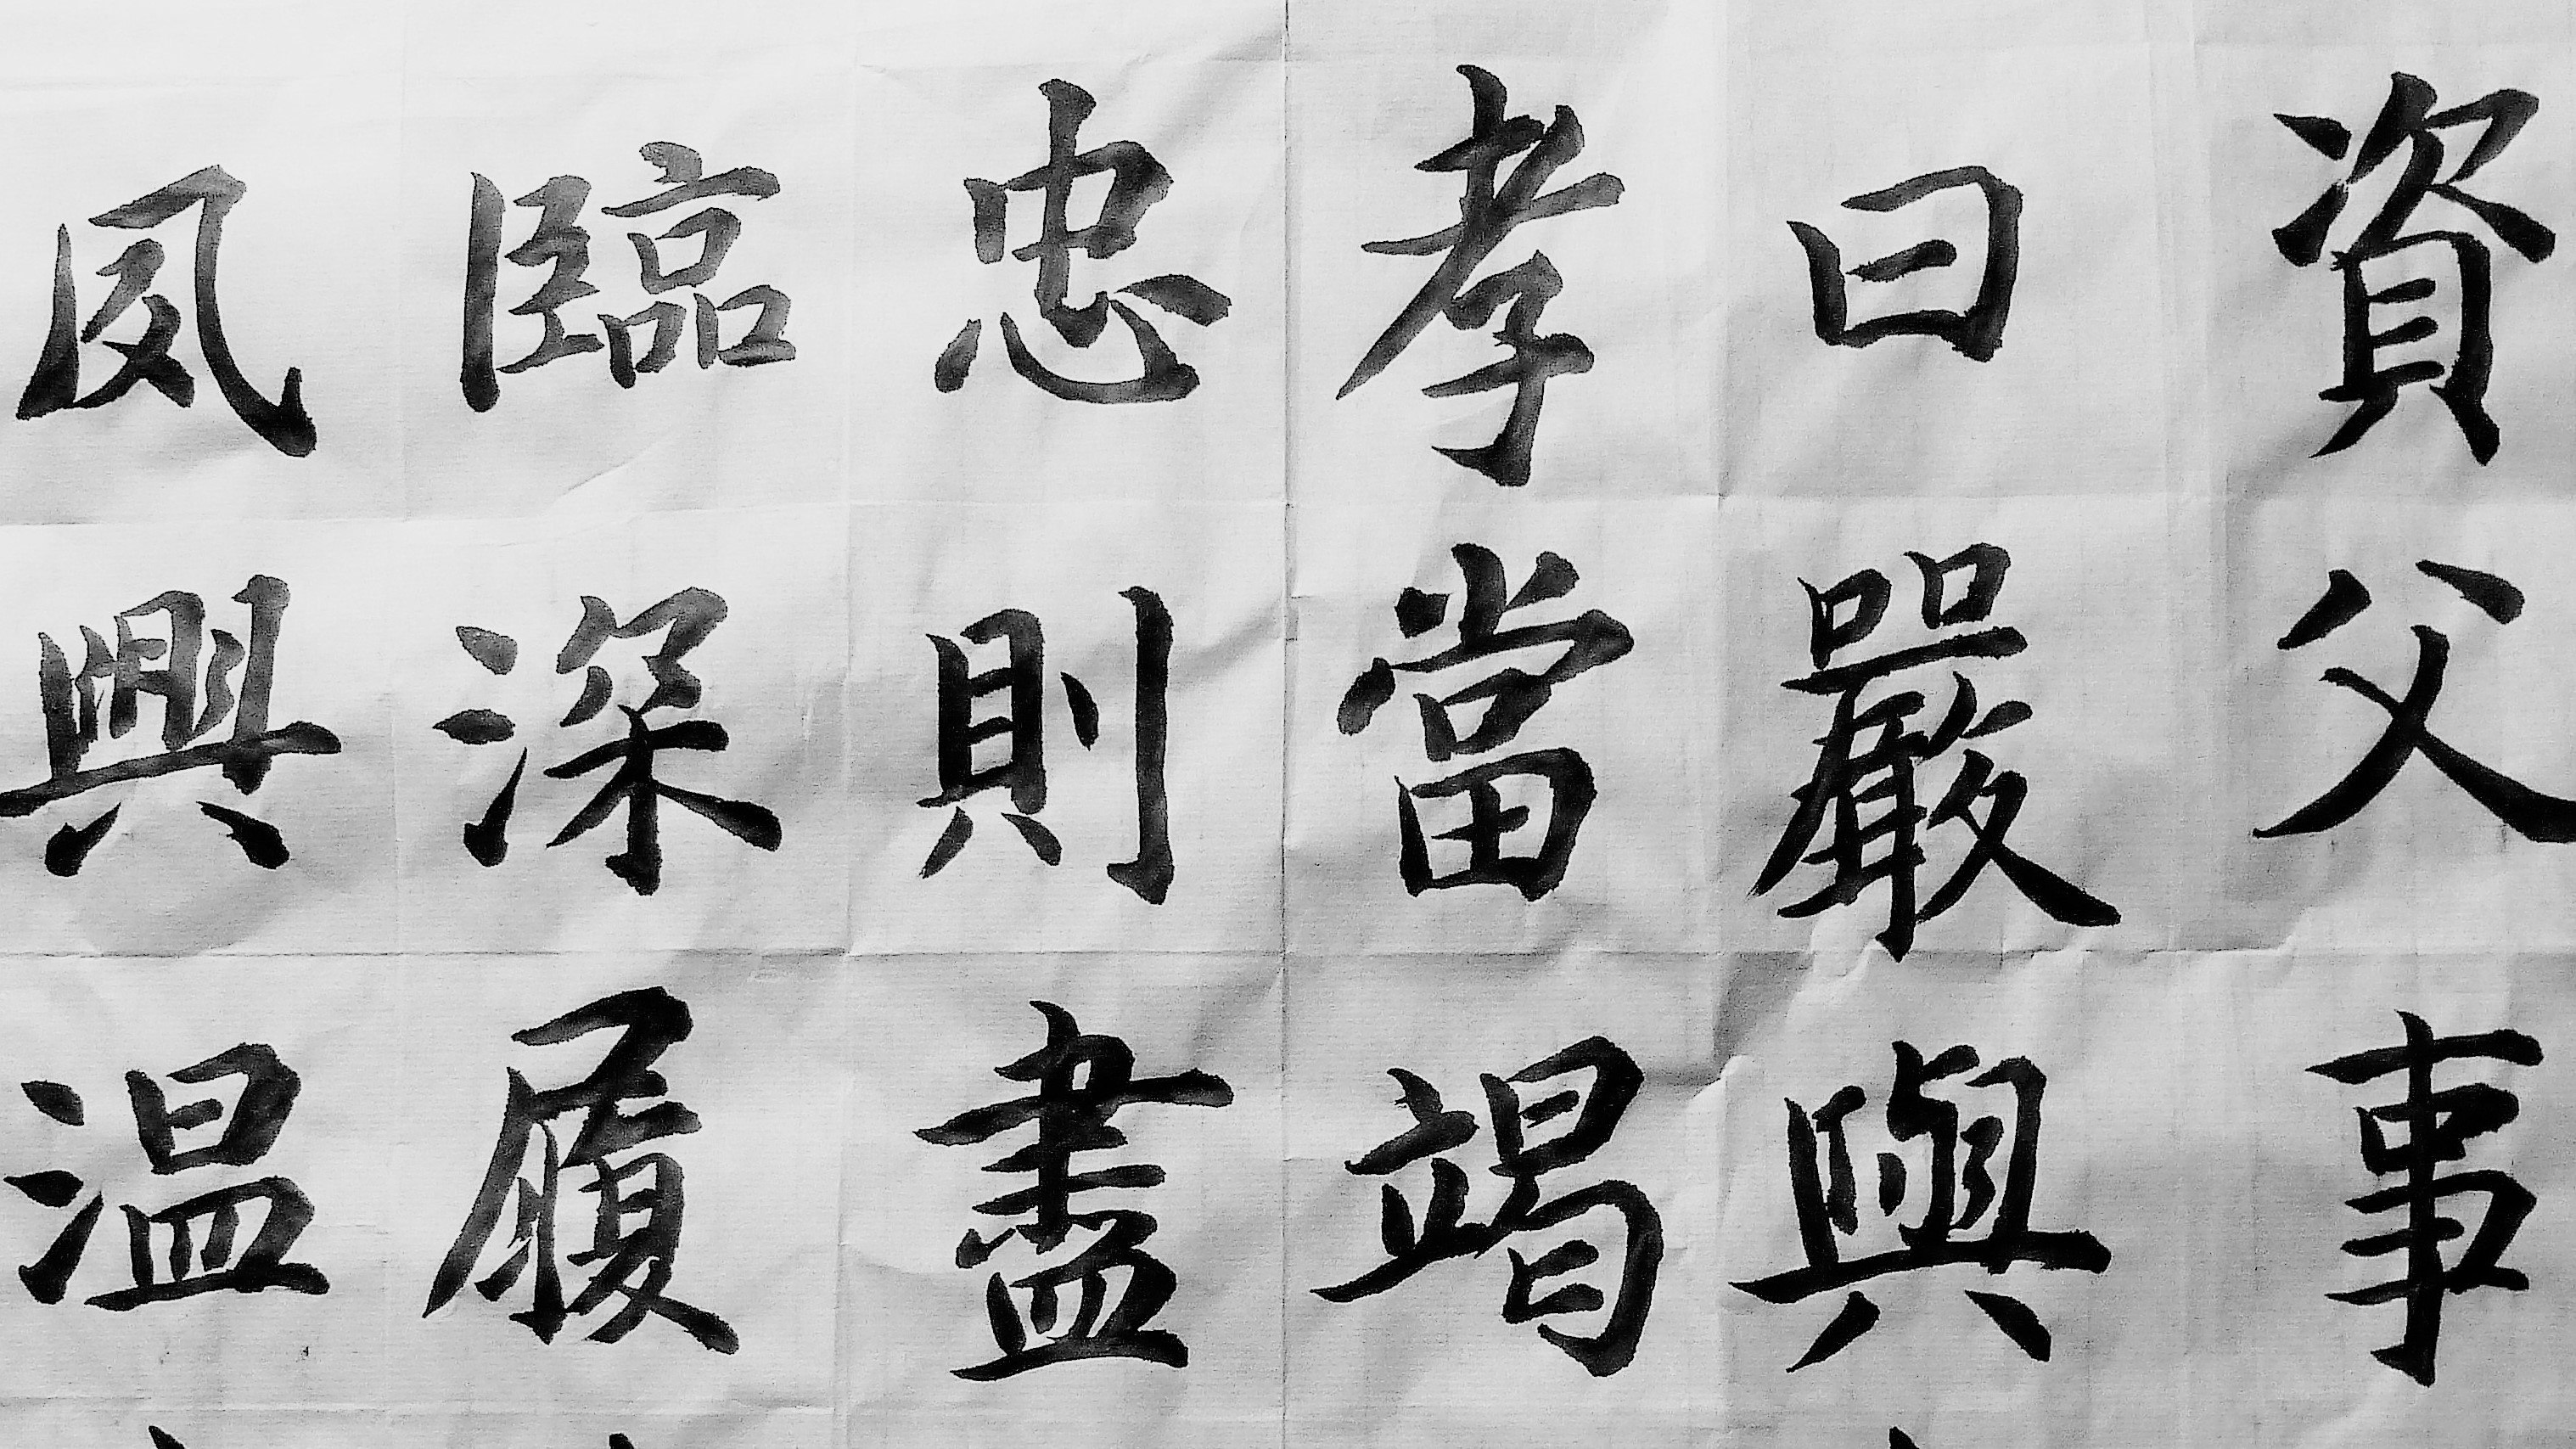 資父事
曰嚴與
孝當竭
忠則盡
臨深履
夙興温